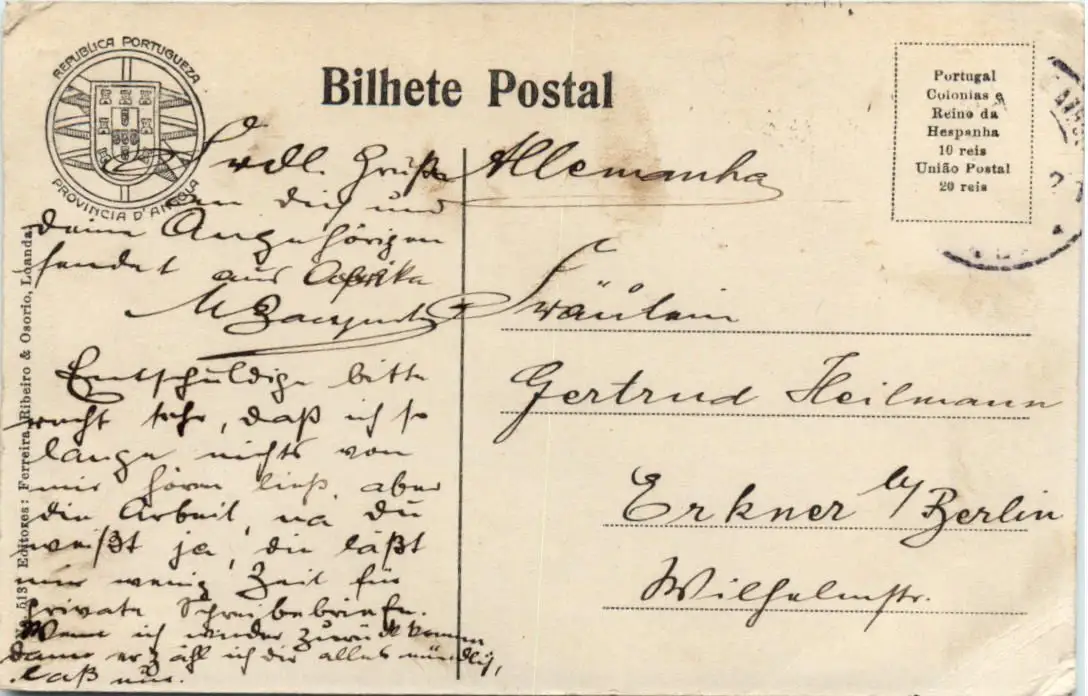 REPUBLICA PORTUGUEZA
PROVINCIA D'ANGOLA
Bilhete Postal
Portugal
Colonias e
Reino da
Hespanha
10 reis
União Postal
20 reis
Frdl. Grüße
an dich und
deine Angehörigen
sendet aus Afrika
M
Entschuldige bitte
recht sehr, daß ich so
lange nichts von
mir hören ließ, aber
die Arbeit, na du
weißt ja, die läßt
mir wenig Zeit für
private Schreibebriefe.
Wenn ich wieder zurück komme
dann erzähl ich dir alles mündlich,
laß nur.
Allemanha
Fräulein
Gertrud Heilmann
Erkner b/Berlin
Wilhelmstr.
513 Editores: Ferreira, Ribeiro & Osorio, Loanda